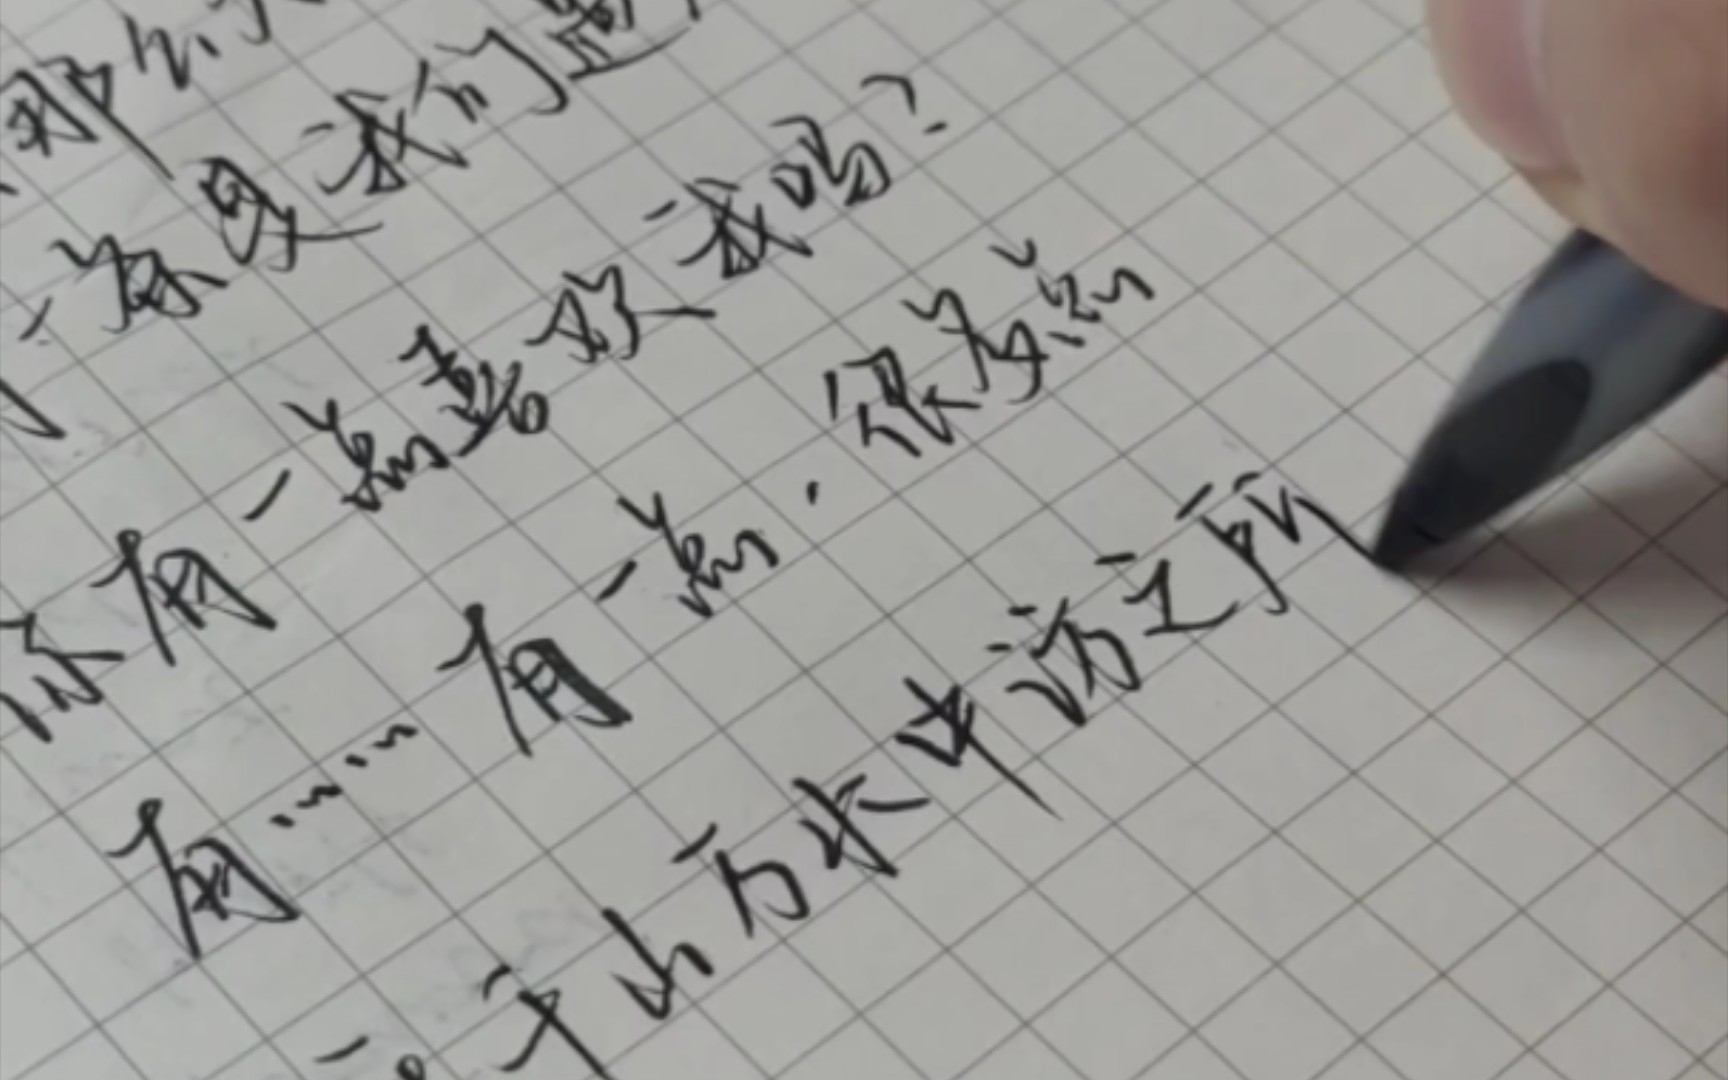 那
你是我们
你有一点喜欢我吗?
有……有一点.很多点
千山万水中访之所